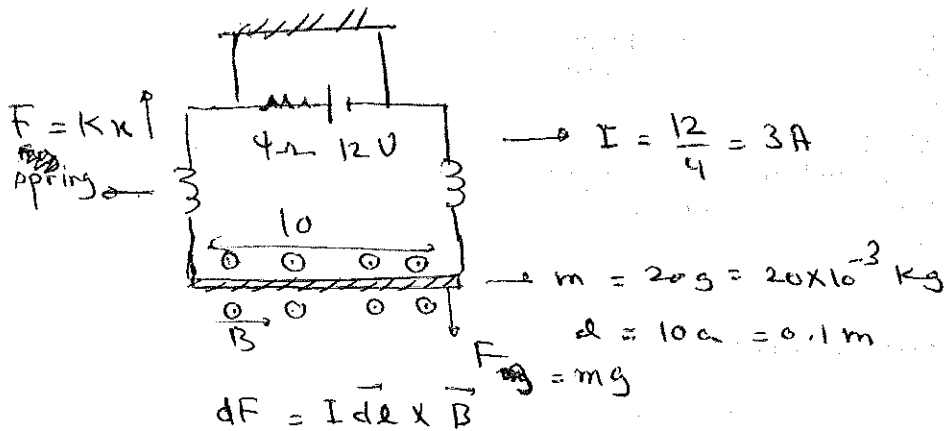 F = Kx
spring
4Ω 12 V
→ I = 12/4 = 3A
10
B
m = 20g = 20×10⁻³ kg
d = 10 c = 0.1 m
F = mg
dF = I d⃗l × B⃗